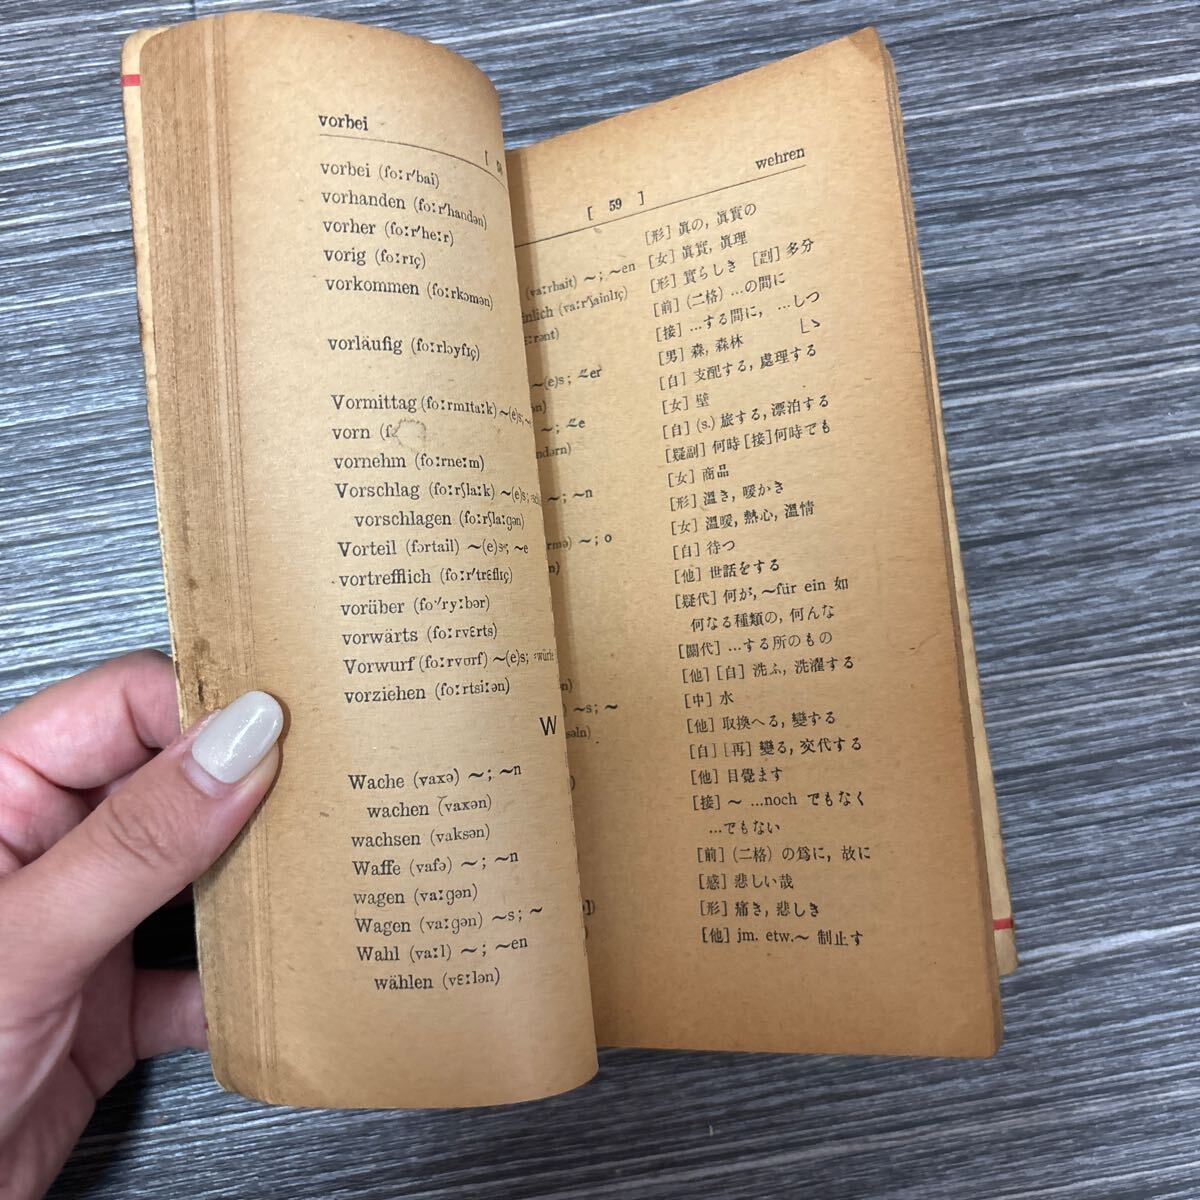 vorbei
vorbei (foːr'bai)
vorhanden (foːr'handən)
vorher (foːr'heːr)
vorig (foːrɪç)
vorkommen (foːrkɔmən)
vorläufig (foːrlɔyfɪç)
Vormittag (foːrmɪtaːk) ～(e)s;
vorn
vornehm (foːrneːm)
Vorschlag (foːrʃlaːk) ～(e)s;
vorschlagen (foːrʃlaːɡən)
Vorteil (fɔrtail) ～(e)s; ～e
vortrefflich (foːr'trɛflɪç)
vorüber (fo'ryːbər)
vorwärts (foːrvɛrts)
Vorwurf (foːrvʊrf) ～(e)s;
vorziehen (foːrtsiːən)
W
Wache (vaxə) ～; ～n
wachen (vaxən)
wachsen (vaksən)
Waffe (vafə) ～; ～n
wagen (vaːɡən)
Wagen (vaːɡən) ～s; ～
Wahl (vaːl) ～; ～en
wählen (vɛːlən)
[ 59 ] wehren
[形] 眞の, 眞實の
(vaːrhait) ～; ～en [女] 眞實, 眞理
(vaːr'ʃainlɪç) [形] 實らしき [副] 多分
[前] (二格) …の間に
[接] …する間に, …しつ
ゝ
～(e)s; ⸚er [男] 森, 森林
[自] 支配する, 處理する
～; ⸚e [女] 壁
[自] (s.) 旅する, 漂泊する
[疑副] 何時 [接] 何時でも
～; ～n [女] 商品
[形] 溫き, 暖かき
～; o [女] 溫暖, 熱心, 溫情
[自] 待つ
[他] 世話をする
[疑代] 何が, ～für ein 如
何なる種類の, 何んな
[關代] …する所のもの
[他] [自] 洗ふ, 洗濯する
～s; ～ [中] 水
[他] 取換へる, 變ずる
[自] [再] 變る, 交代する
[他] 目覺ます
[接] ～ …noch でもなく
…でもない
[前] (二格) の爲に, 故に
[感] 悲しい哉
[形] 痛き, 悲しき
[他] jm. etw.～ 制止す